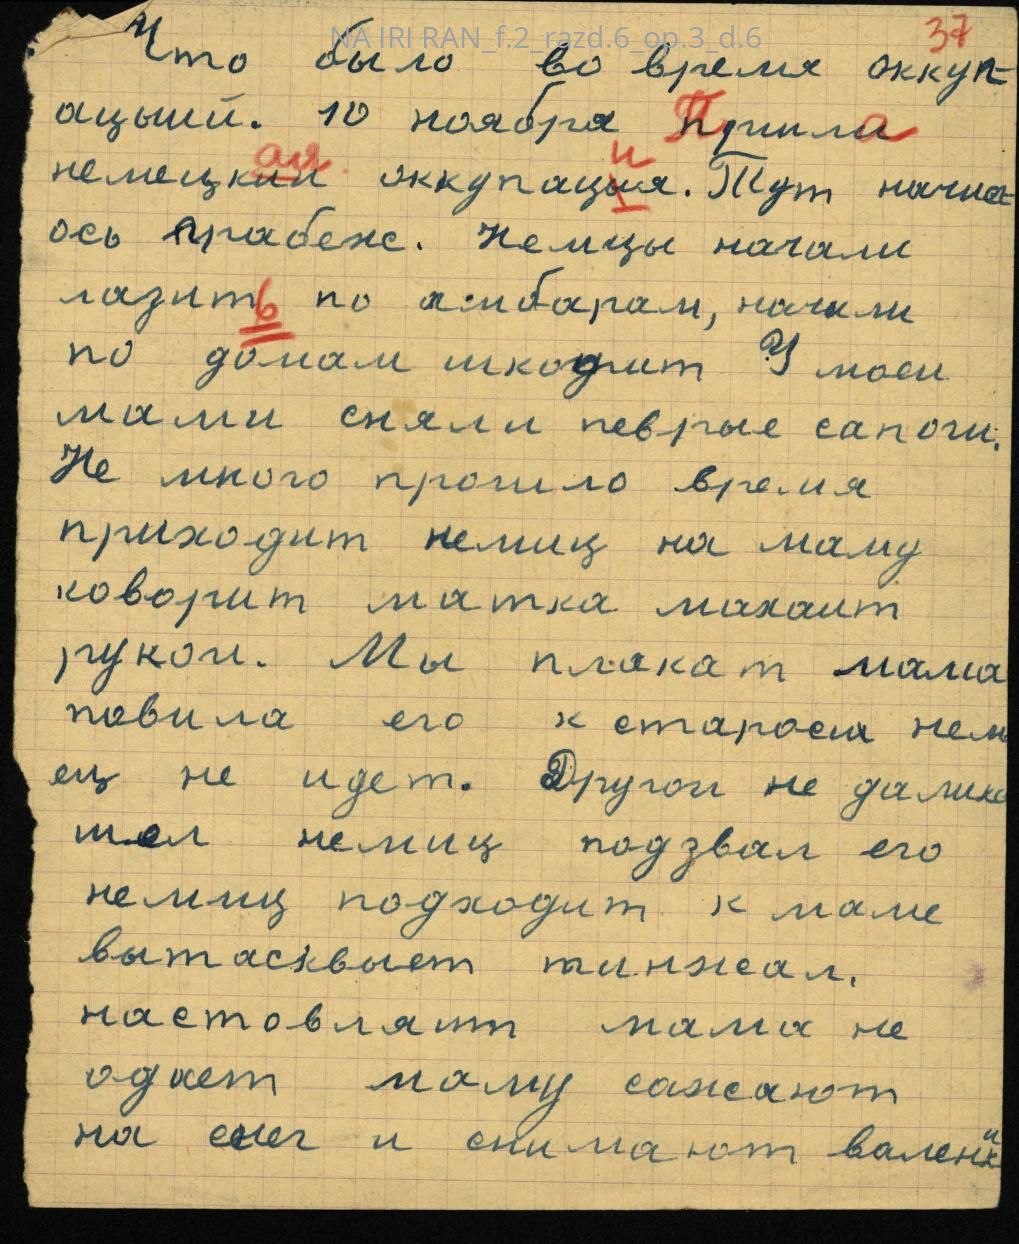 NA IRI RAN_f.2_razd.6_op.3_d.6
37
Что было во время оккуп-
ацыий. 10 ноября пришла
немецкий оккупацыя. Тут начил-
ось прабеж. Немцы начали
лазить по амбарам, начели
по домам шкодит У моей
мами сняли певрые сапоги.
Не много прошло время
приходит немиц на маму
коворит матка махаит
рукой. Мы плакат мама
павила его к староси нем
ец не идет. Другой не далико
шел немиц подзвал его
немиц подходит к маме
вытасквыет тинжал.
настовлят мама не
одает маму сажают
на снег и снимают валенки